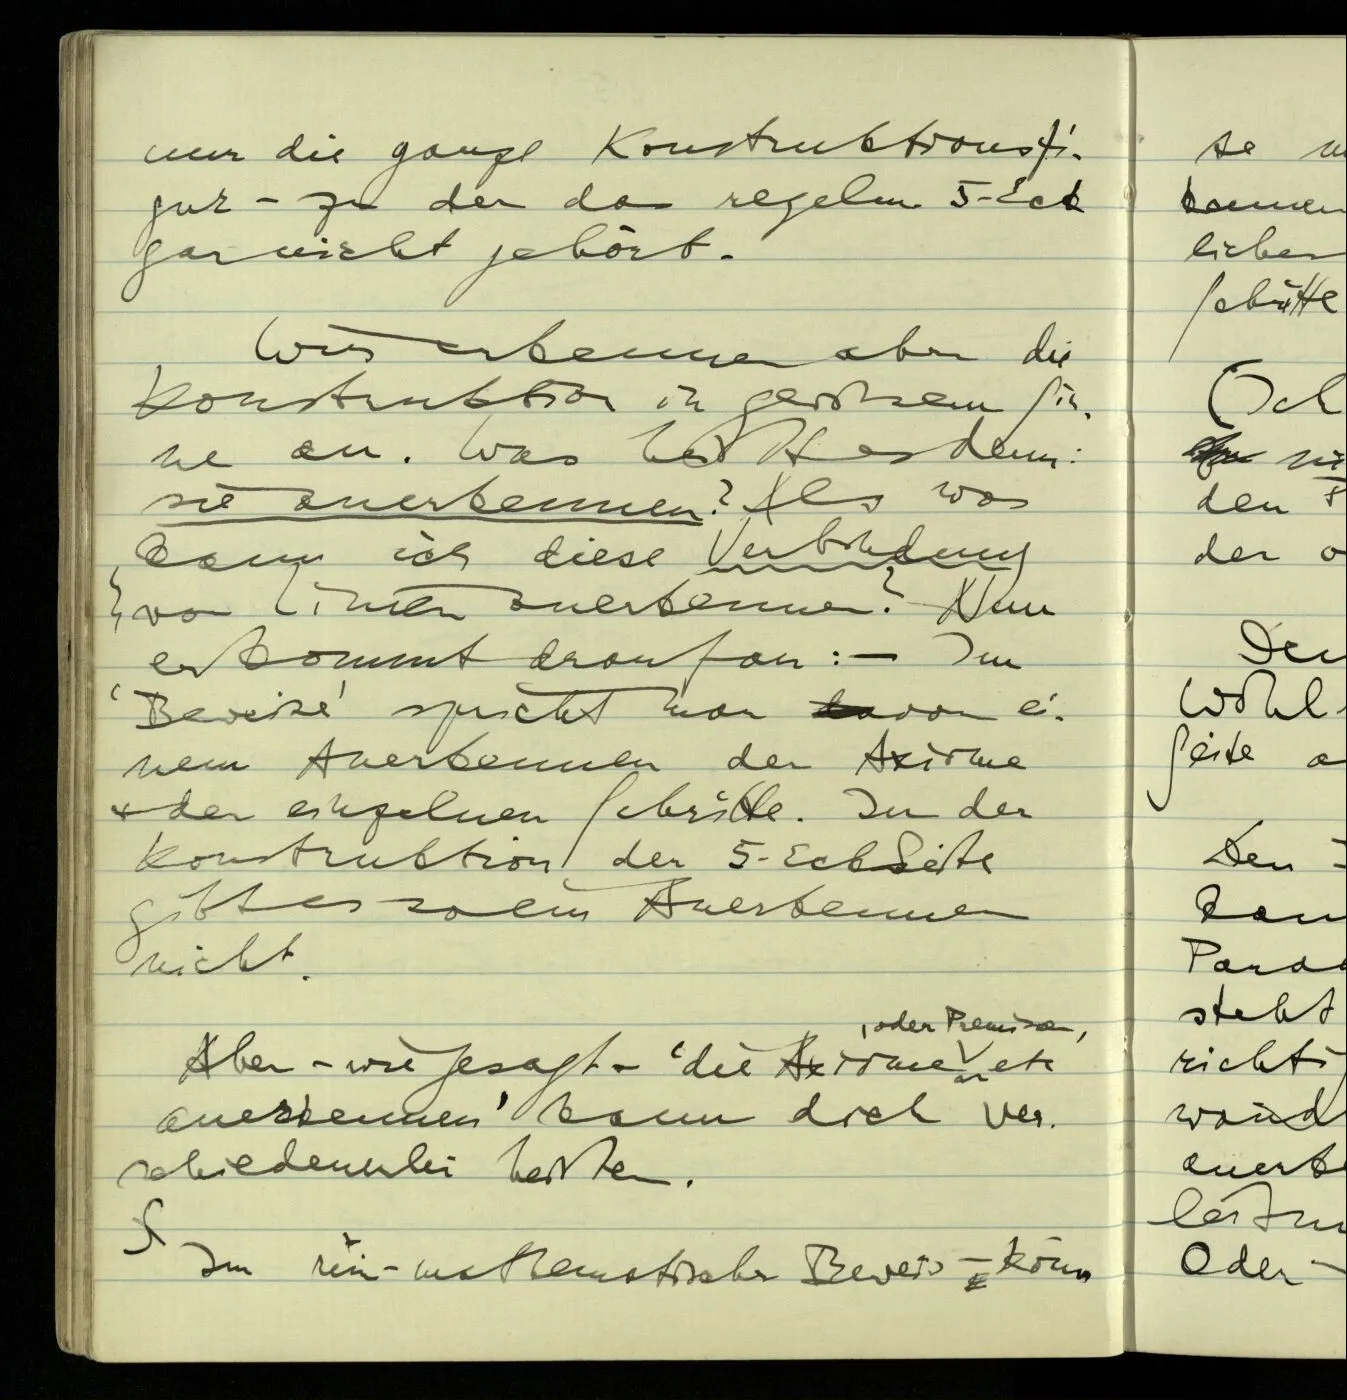 nur die ganze Konstruktionsfi-
gur – zu der das regelm 5-Eck
gar nicht gehört.
Wir erkennen aber die
Konstruktion in gewissem Sin-
ne an. Was heißt es denn:
sie anerkennen? Als was
kann ich diese Verbindung
von Linien anerkennen? Nun
es kommt drauf an: – Im
'Beweise' spricht man von ei-
nem Anerkennen der Axiome
+ der einzelnen Schritte. In der
Konstruktion der 5-EckSeite
gibt es so ein Anerkennen
nicht.
, oder Premisen,
Aber – wie gesagt – 'die Axiome etc
anerkennen' kann dich ver-
schiedenerlei heißen.
S
Im rein-mathematischen Beweis – könn
se
kennen
licher
Schritte
(Ich
den
der
Den
Wohl
Seite
Den
kann
steht
Oder –